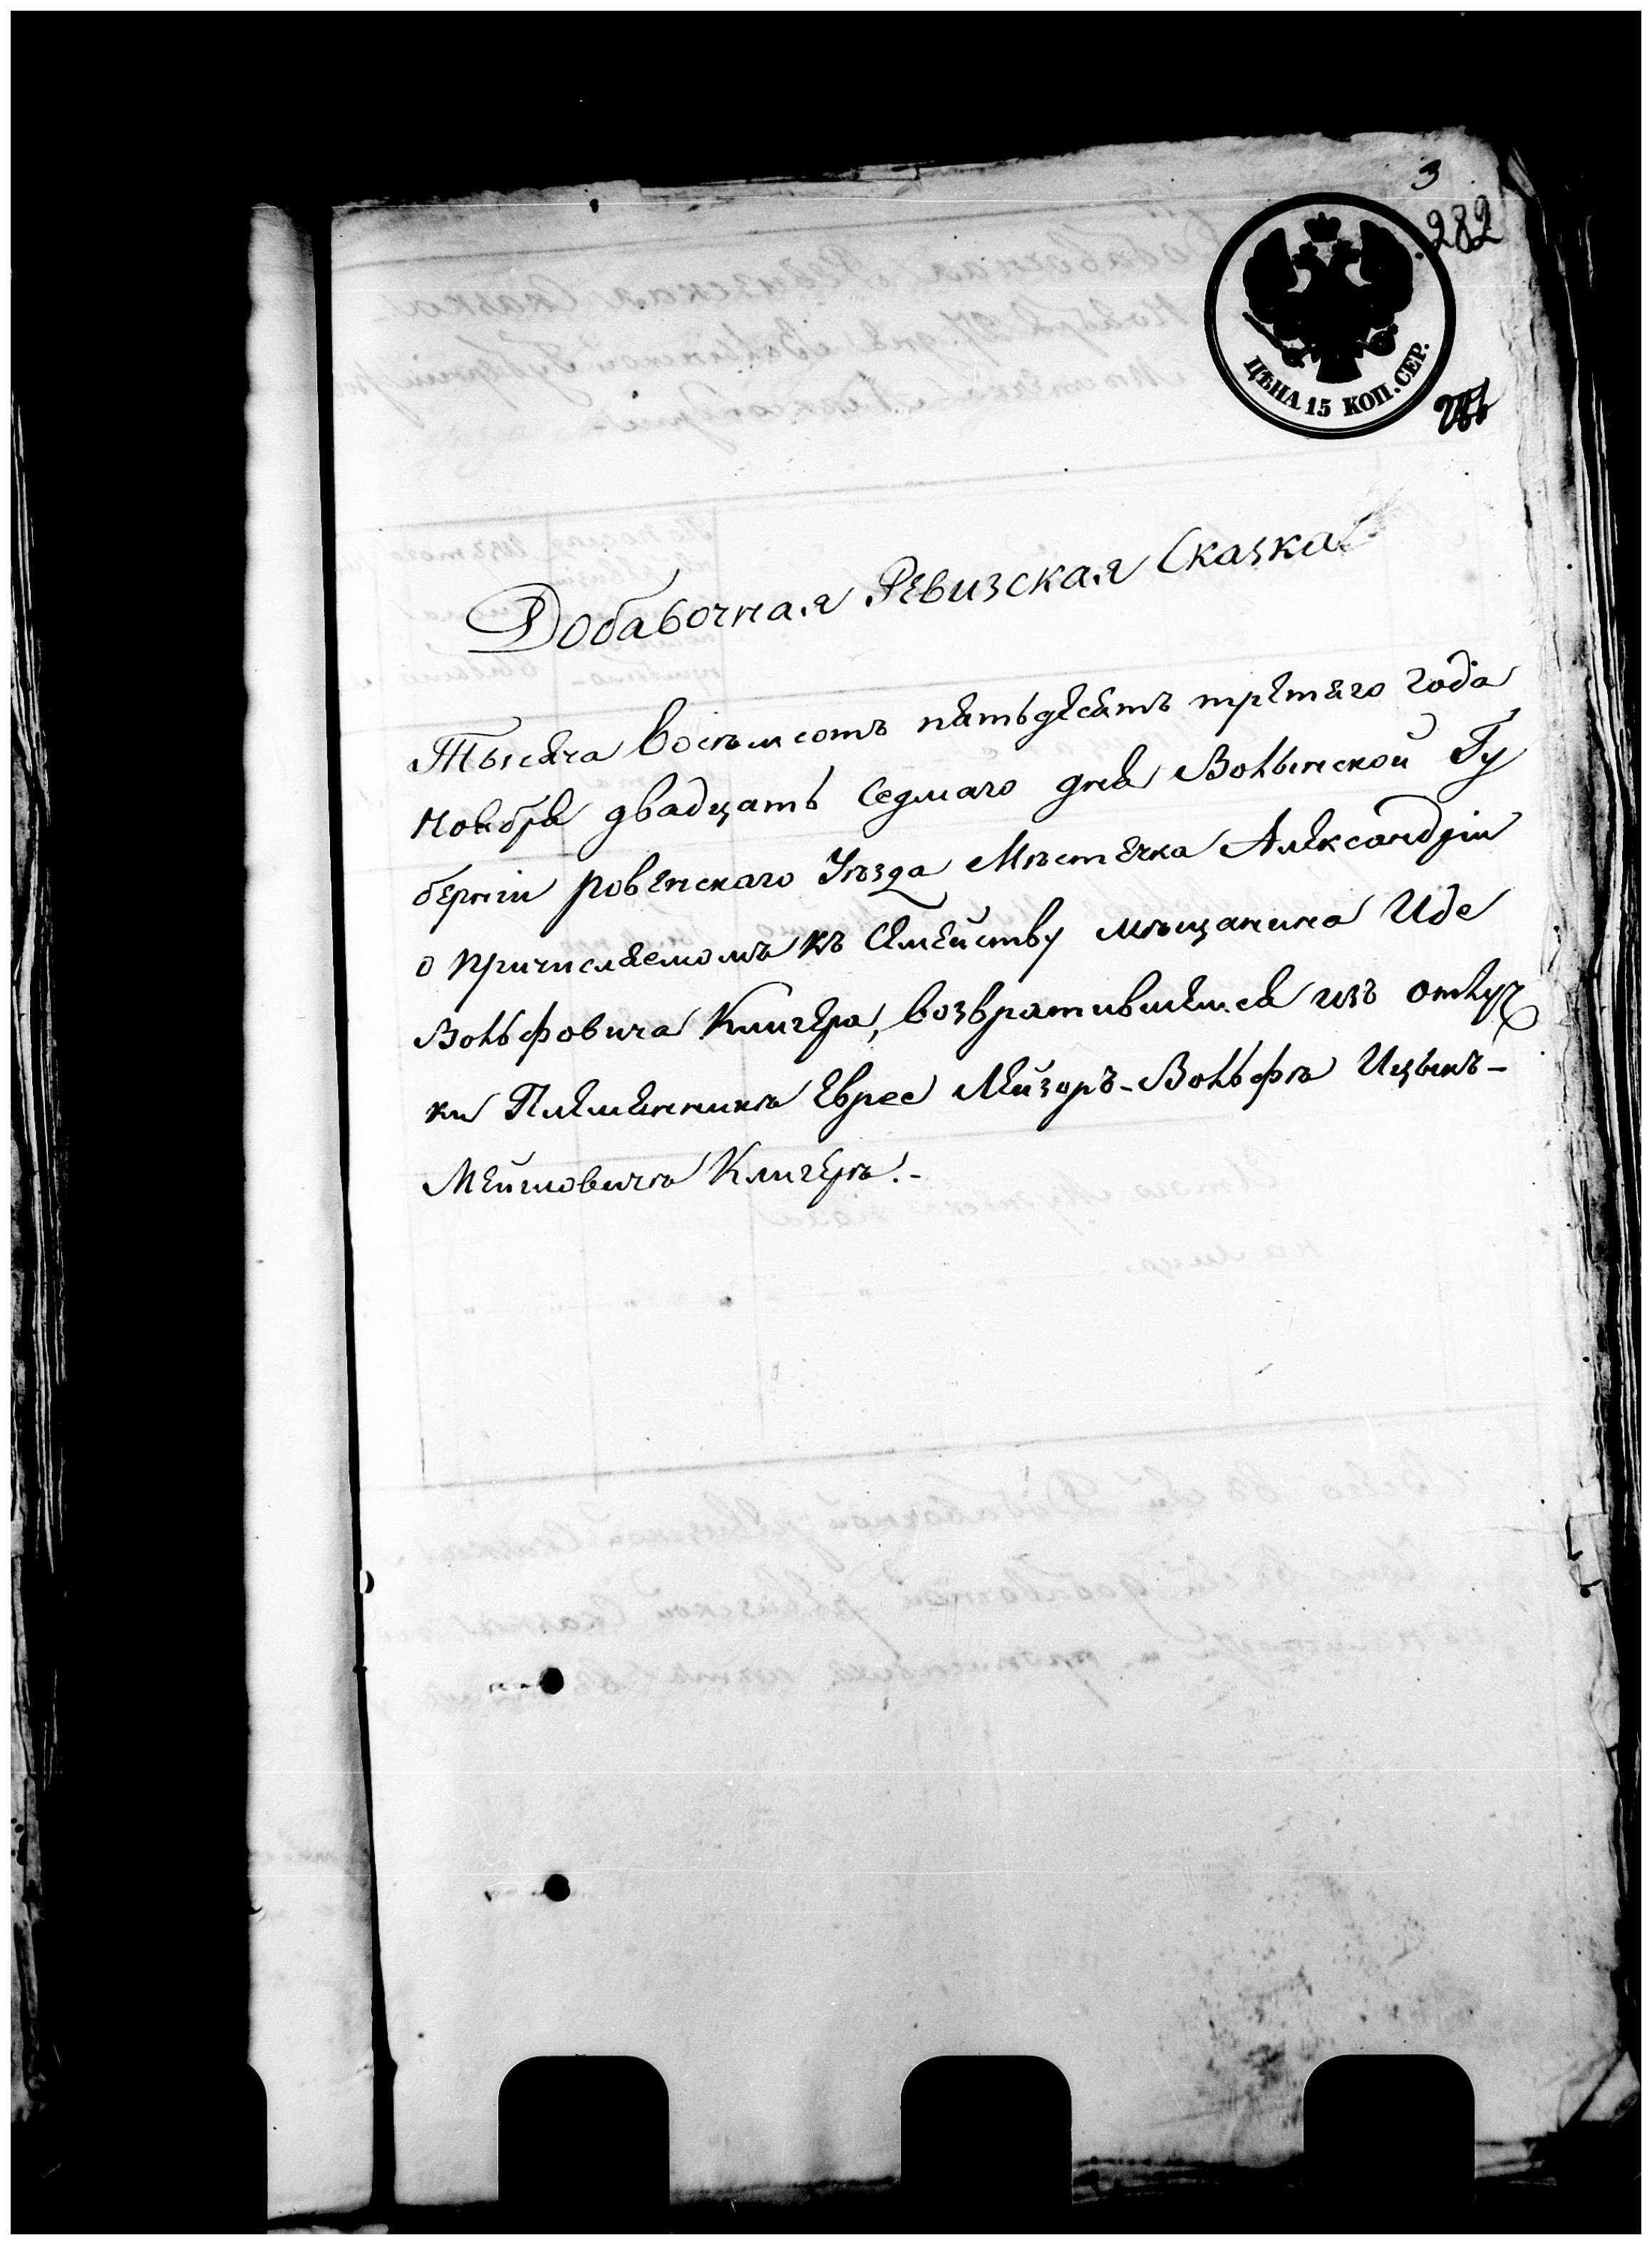 3
282
ЦѢНА 15 КОП. СЕР.
Добавочная Ревизская Сказка
Тысяча восемсотъ пятьдесятъ третяго года
Ноября двадцать седмаго дня Волынской Гу
берніи ровенскаго Уѣзда Мѣстечка Александріи
о причисляемомъ къ Семейству мѣщанина Иде
Вольфовича Клигера, возвратившемся изъ отлуч
ки Племяннику Еврее Лейзоръ-Вольфъ Ицыкъ-
Мейловичъ Клигеръ.-